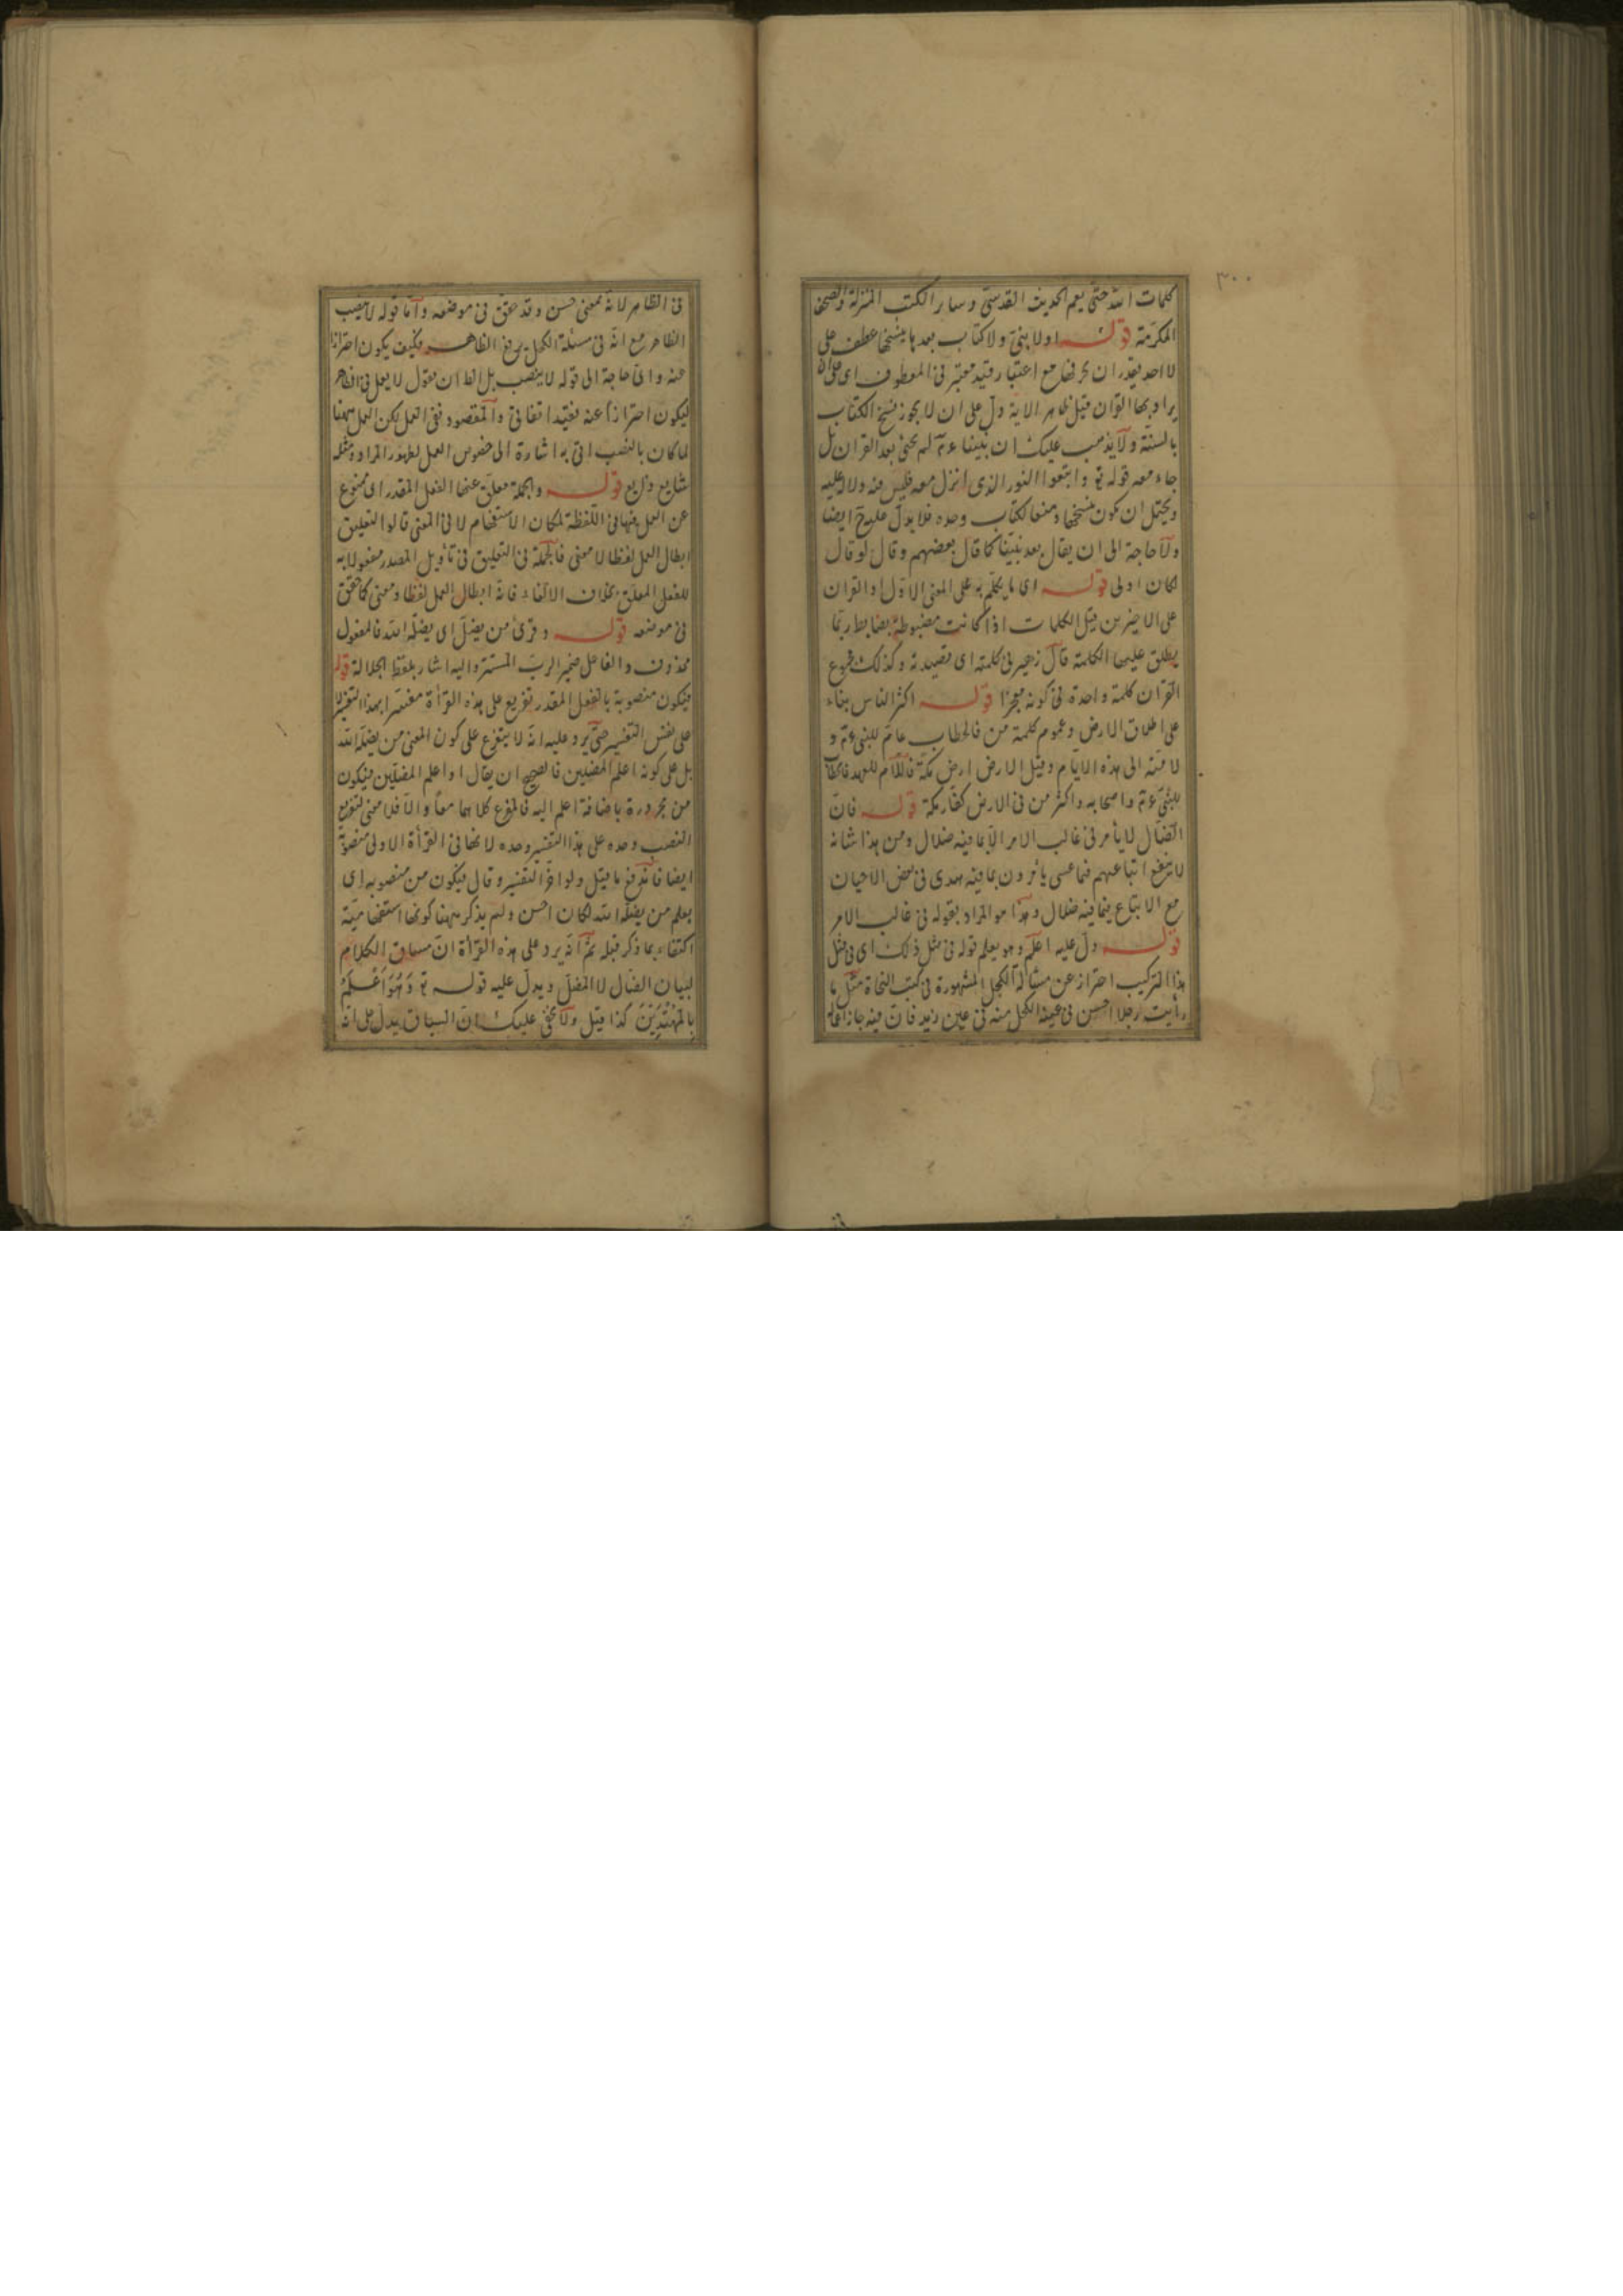 ٣٠٠
كلمات الله حتى يعم الحديث القدسى وسائر الكتب المنزلة والصحف
المكرمة قوله او لا بنى ولا كتاب بعدها ينسخها عطف على
لا احد يقدر ان يحرفها مع اعتبار قيد معتبر فى المعطوف اى على ان
يراد بها القران قيل ظاهر الاية دل على ان لا يجوز نسخ الكتاب
بالسنة ولا يذهب عليك ان نبينا عم لم يجئ بعد القران بل
جاء معه قوله تع واتبعوا النور الذى انزل معه فليس فيه دلالة عليه
ويحتمل ان يكون نسخها ومنعا لكتاب وحده فلا يدل عليه ايضا
ولا حاجة الى ان يقال بعد نبينا كما قال بعضهم وقال لو قال
لكان اولى قوله اى ما يكلم به على المعنى الاول او القران
على الاخيرين قيل الكلمات اذا كانت مضبوطة بضابط ربما
يطلق عليها الكلمة قال زهير فى كلمته اى قصيدته وكذلك مجموع
القران كلمة واحدة فى كونه معجزا قوله اكثر الناس بناء
على اطلاق الارض وعموم كلمة من فالخطاب عام للنبى عم و
لامته الى هذه الايام وقيل الارض ارض مكة فاللام للعهد فالخطاب
للنبى عم واصحابه واكثر من فى الارض كفار مكة قوله فان
الضال لا يأمر فى غالب الامر الا بما فيه ضلال ومن هذا شانه
لا ينفع اتباعهم فما عسى يأمرون بما فيه هدى فى بعض الاحيان
مع الاتباع فيما فيه ضلال وهذا هو المراد بقوله فى غالب الامر
قوله دل عليه اعلم وهو يعلم قوله فى مثل ذلك اى فى مثل
هذا التركيب احتراز عن مسألة الكحل المشهورة فى كتب النحاة مثل ما
رأيت رجلا احسن فى عينه الكحل منه فى عين زيد فان فيه جاز اعماله
فى الظاهر لانه بمعنى حسن وقد حقق فى موضعه واما قوله لا ينصب
الظاهر مع انه فى مسئلة الكحل يرفع الظاهر فكيف يكون احترازا
عنه واى حاجة الى قوله لا ينصب بل الظ ان يقول لا يعمل فى الظاهر
ليكون احترازا عنه فقيد اتفاقى والمقصود نفى العمل لكن العمل ههنا
لما كان بالنصب اتى به اشارة الى خصوص العمل لظهور المراد ومثله
شايع ذايع قوله والجملة معلق عنها الفعل المقدر اى ممنوع
عن العمل فيها فى اللفظة لمكان الاستفهام لا فى المعنى قالوا التعليق
ابطال العمل لفظا لا معنى فالجملة فى التعليق فى تأويل المصدر مفعولا به
للفعل المعلق بخلاف الالغاء فانه ابطال العمل لفظا ومعنى كما حقق
فى موضعه قوله وقرئ من يضل اى يضله الله فالمفعول
محذوف والفاعل ضمير الرب المستتر واليه اشار بلفظ الجلالة قوله
فيكون منصوبة بالفعل المقدر تفريع على هذه القرأة مفسرا بهذا التفسير لا
على نفس التفسير حتى يرد عليه انه لا يتفرع على كون المعنى من يضله الله
بل على كونه اعلم المضلين فالصحيح ان يقال او اعلم المضلين فيكون
من مجرورة باضافة اعلم اليه فالمفرع كلاهما معا والا فلا معنى لتفريع
النصب وحده على هذا التفسير وحده لانها فى القرأة الاولى منصوبة
ايضا فاندفع ما قيل ولو اخر التفسير وقال فيكون من منصوبه اى
يعلم من يضله الله لكان احسن ولم يذكر ههنا كونها استفهامية
اكتفاء بما ذكر قبله ثم انه يرد على هذه القرأة ان مساق الكلام
لبيان الضال لا المضل ويدل عليه قوله تع وَهُوَ اَعْلَمُ
بِالْمُهْتَدِينَ كذا قيل ولا يخفى عليك ان السباق يدل على انه